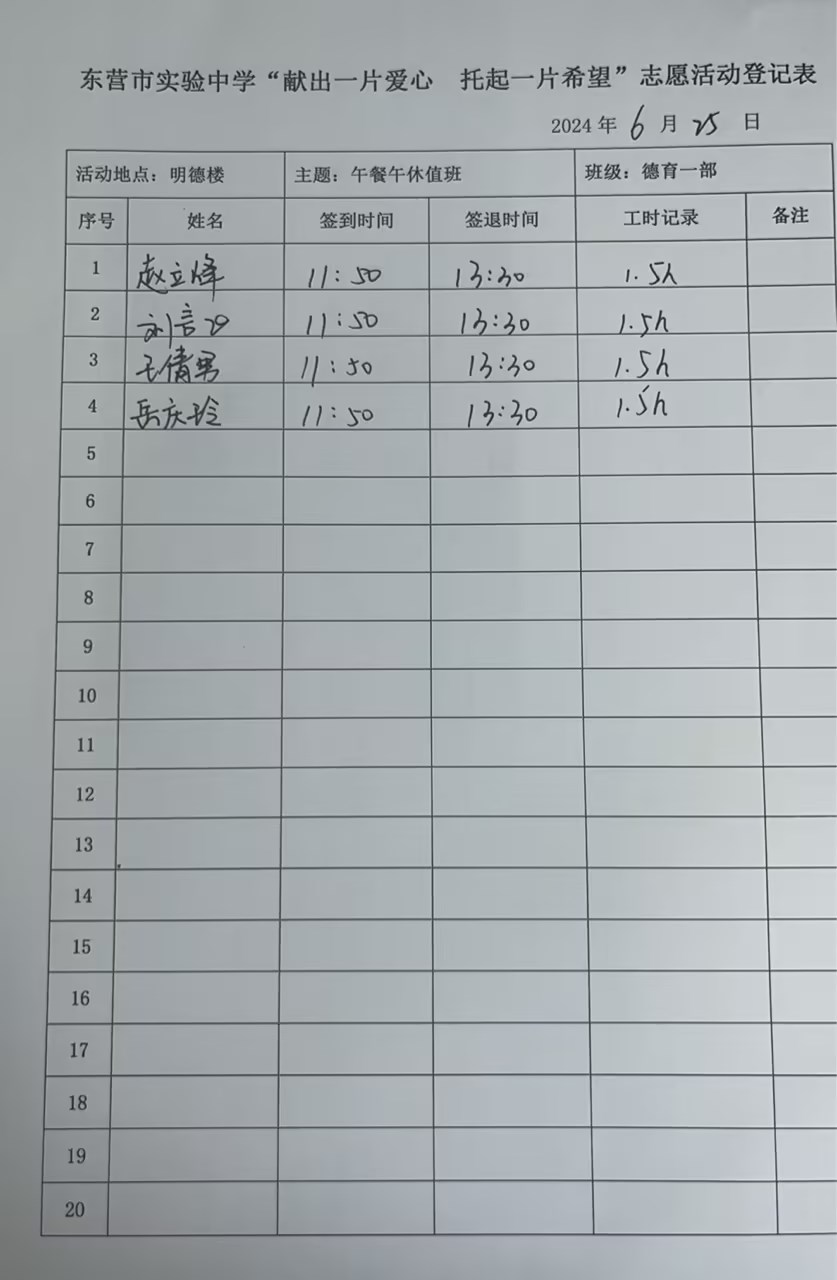 东营市实验中学“献出一片爱心 托起一片希望”志愿活动登记表
2024 年 6 月 25 日
活动地点：明德楼 主题：午餐午休值班 班级：德育一部
序号 姓名 签到时间 签退时间 工时记录 备注
1 赵立烽 11:50 13:30 1.5h
2 刘言 11:50 13:30 1.5h
3 王倩男 11:50 13:30 1.5h
4 岳庆玲 11:50 13:30 1.5h
5
6
7
8
9
10
11
12
13
14
15
16
17
18
19
20